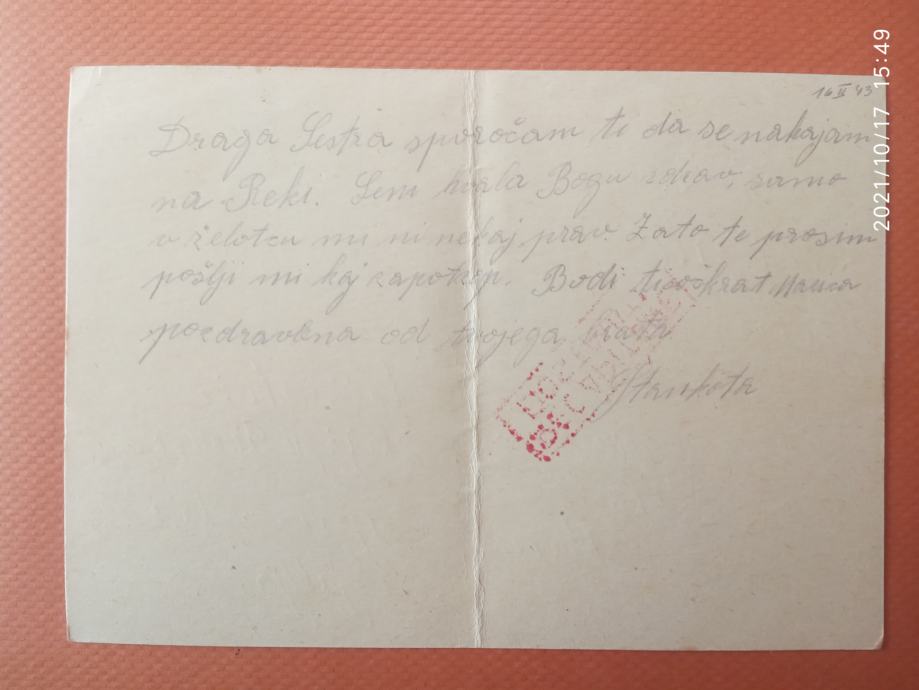 16 II 43
Draga Sestra sporočam ti da se nahajam
na Reki. Sem hvala Bogu zdrav, samo
v želotcu mi ni nekaj prav. Zato te prosim
pošlji mi kaj
Bodi tisočkrat
pozdravlena od tvojega brata
2021/10/17 15:49